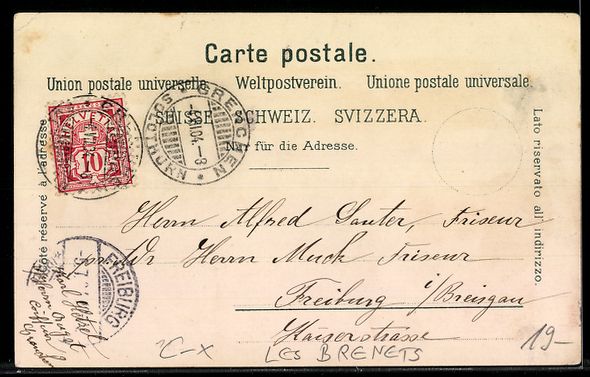 Carte postale.
Union postale universelle. Weltpostverein. Unione postale universale.
SUISSE. SCHWEIZ. SVIZZERA.
Nur für die Adresse.
Côté réservé à l'adresse
Lato riservato all' indirizzo.
HELVETIA
10
GRENCHEN
SOLOTHURN
Herrn Alfred Sauter, Friseur
Herrn Muck Friseur
Freiburg i/Breisgau
Kaiserstrasse
FREIBURG
C-X
LES BRENETS
19-